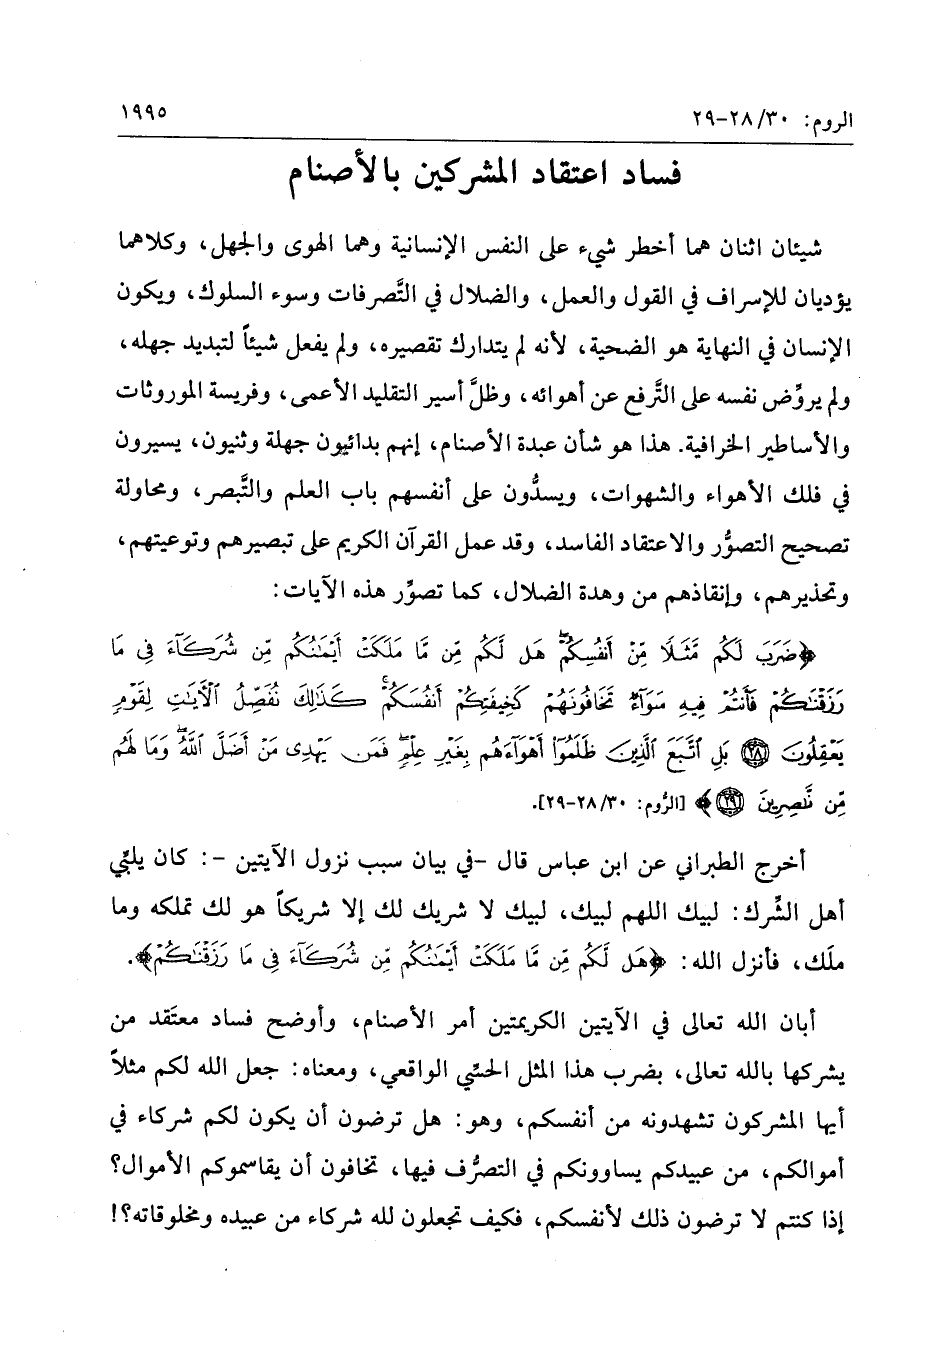 الروم: ٢٨/٣٠-٢٩
١٩٩٥
فساد اعتقاد المشركين بالأصنام
شيئان اثنان هما أخطر شيء على النفس الإنسانية وهما الهوى والجهل، وكلاهما
يؤديان للإسراف في القول والعمل، والضلال في التَّصرفات وسوء السلوك، ويكون
الإنسان في النهاية هو الضحية، لأنه لم يتدارك تقصيره، ولم يفعل شيئاً لتبديد جهله،
ولم يروِّض نفسه على التَّرفع عن أهوائه، وظلَّ أسير التقليد الأعمى، وفريسة الموروثات
والأساطير الخرافية. هذا هو شأن عبدة الأصنام، إنهم بدائيون جهلة وثنيون، يسيرون
في فلك الأهواء والشهوات، ويسدُّون على أنفسهم باب العلم والتَّبصر، ومحاولة
تصحيح التصوُّر والاعتقاد الفاسد، وقد عمل القرآن الكريم على تبصيرهم وتوعيتهم،
وتحذيرهم، وإنقاذهم من وهدة الضلال، كما تصوِّر هذه الآيات:
﴿ضَرَبَ لَكُم مَّثَلًا مِّنْ أَنفُسِكُمْۖ هَل لَّكُم مِّن مَّا مَلَكَتْ أَيْمَٰنُكُم مِّن شُرَكَآءَ فِى مَا
رَزَقْنَٰكُمْ فَأَنتُمْ فِيهِ سَوَآءٌ تَخَافُونَهُمْ كَخِيفَتِكُمْ أَنفُسَكُمْۚ كَذَٰلِكَ نُفَصِّلُ ٱلْأٓيَٰتِ لِقَوْمٍ
يَعْقِلُونَ ﴿٢٨﴾ بَلِ ٱتَّبَعَ ٱلَّذِينَ ظَلَمُوٓا۟ أَهْوَآءَهُم بِغَيْرِ عِلْمٍۖ فَمَن يَهْدِى مَنْ أَضَلَّ ٱللَّهُۖ وَمَا لَهُم
مِّن نَّٰصِرِينَ ﴿٢٩﴾﴾ [الرُّوم: ٢٨/٣٠-٢٩].
أخرج الطبراني عن ابن عباس قال -في بيان سبب نزول الآيتين -: كان يلبِّي
أهل الشِّرك: لبيك اللهم لبيك، لبيك لا شريك لك إلا شريكاً هو لك تملكه وما
ملَك، فأنزل الله: ﴿هَل لَّكُم مِّن مَّا مَلَكَتْ أَيْمَٰنُكُم مِّن شُرَكَآءَ فِى مَا رَزَقْنَٰكُمْ﴾.
أبان الله تعالى في الآيتين الكريمتين أمر الأصنام، وأوضح فساد معتَقد من
يشركها بالله تعالى، بضرب هذا المثل الحسِّي الواقعي، ومعناه: جعل الله لكم مثلاً
أيها المشركون تشهدونه من أنفسكم، وهو: هل ترضون أن يكون لكم شركاء في
أموالكم، من عبيدكم يساوونكم في التصرُّف فيها، تخافون أن يقاسموكم الأموال؟
إذا كنتم لا ترضون ذلك لأنفسكم، فكيف تجعلون لله شركاء من عبيده ومخلوقاته؟!